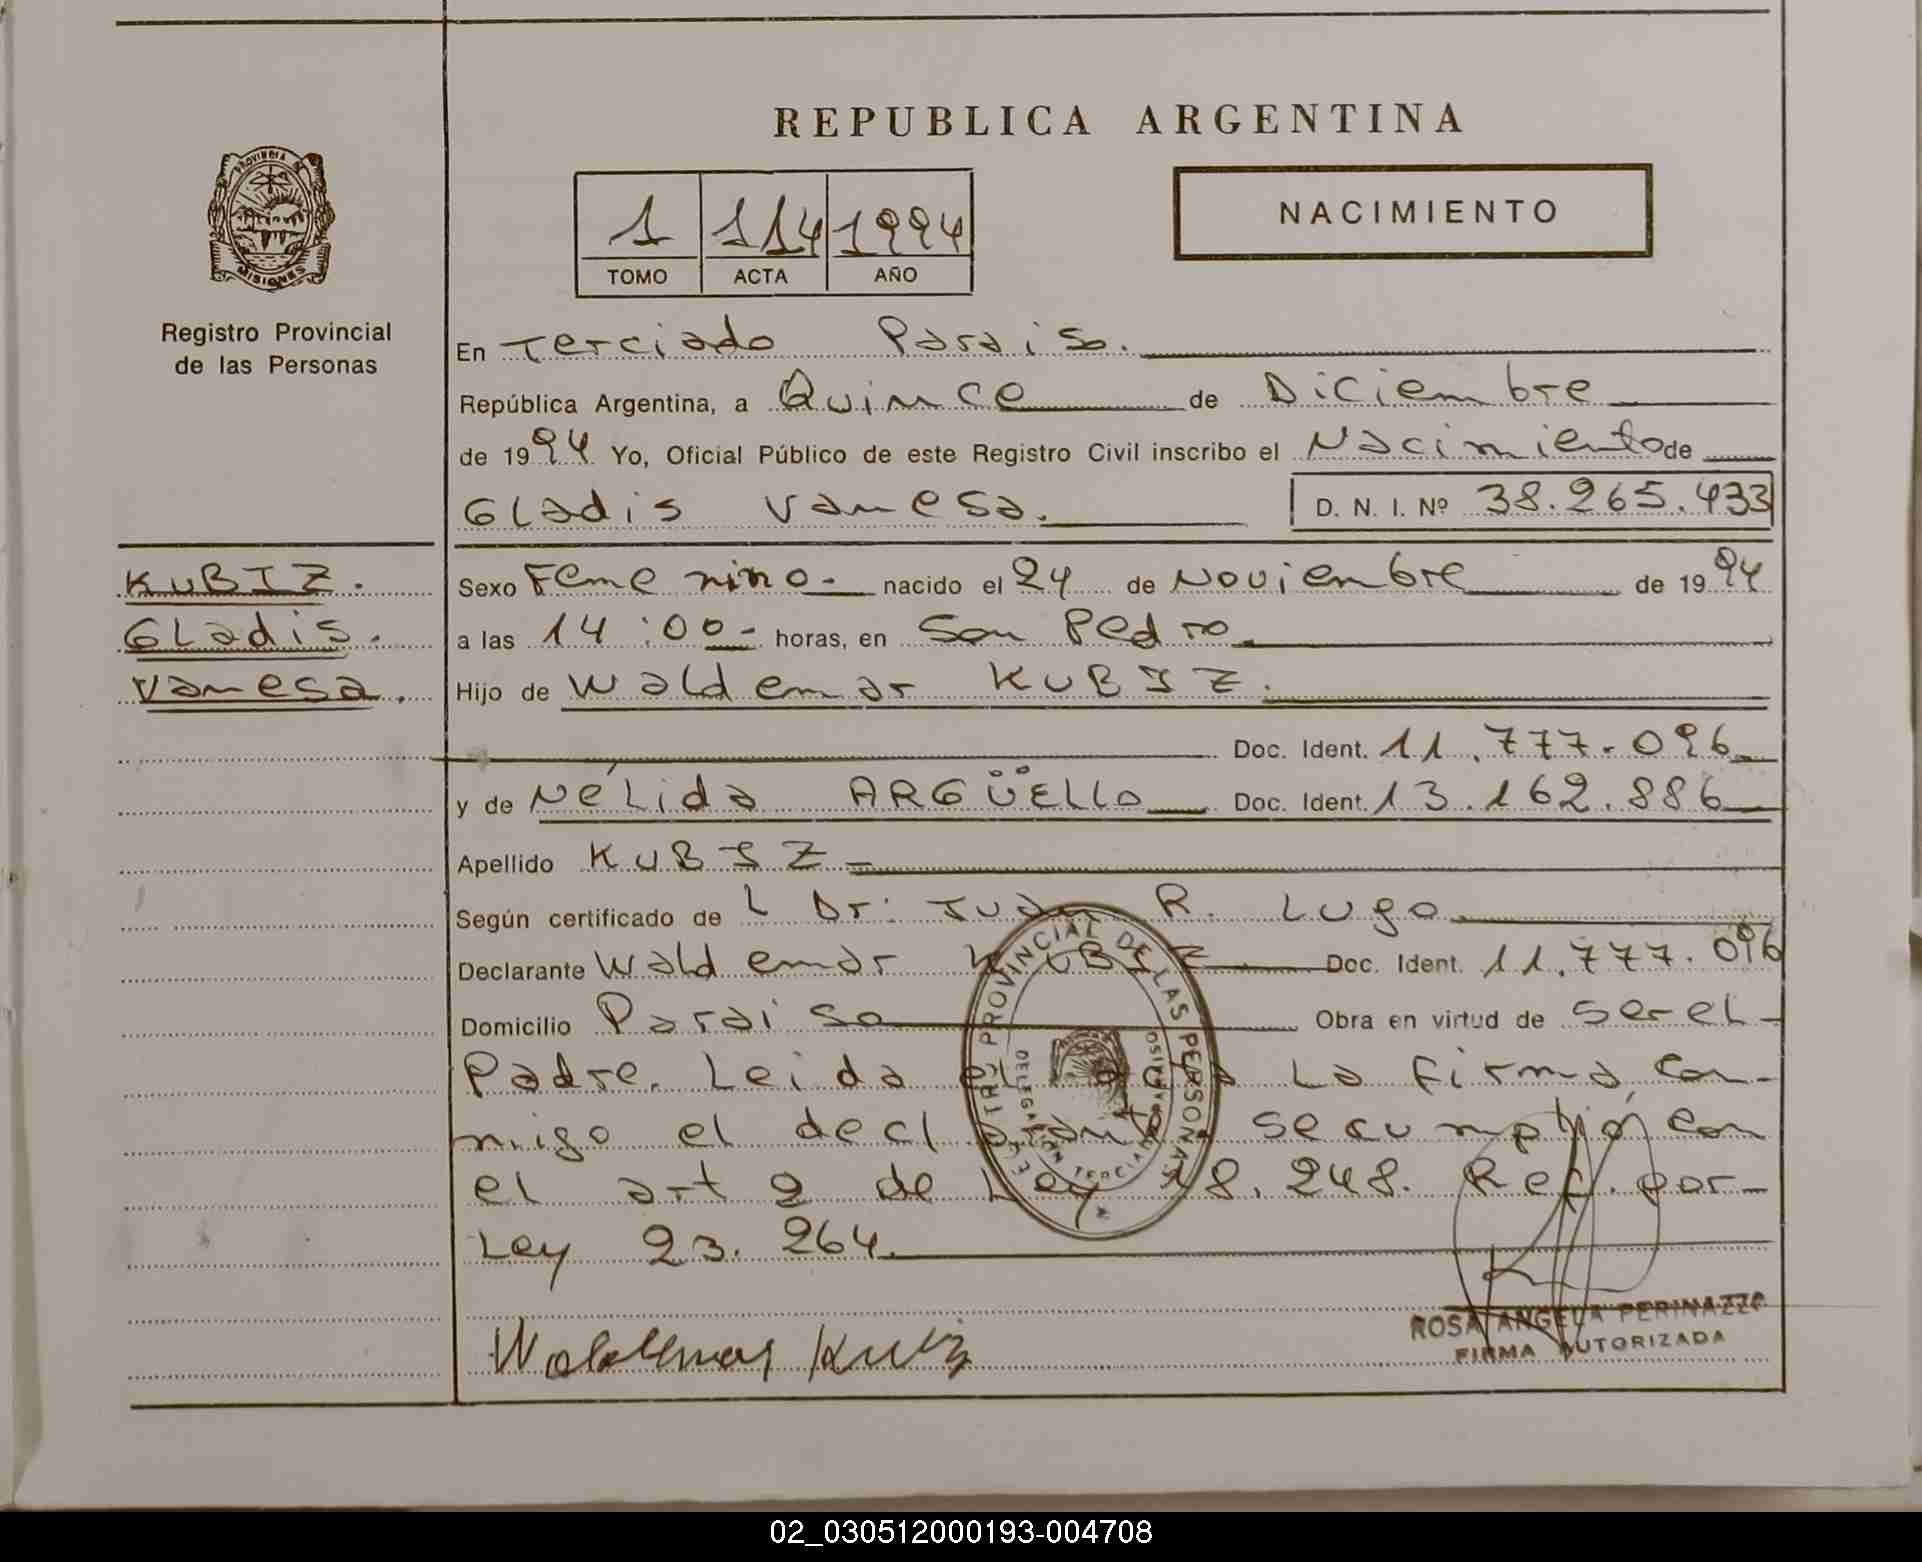 REPUBLICA ARGENTINA
PROVINCIA DE
MISIONES
1 114 1994
TOMO ACTA AÑO
NACIMIENTO
Registro Provincial
de las Personas
En Terciado Paraiso.
República Argentina, a Quince de Diciembre
de 1994 Yo, Oficial Público de este Registro Civil inscribo el Nacimiento de
Gladis Vanesa. D. N. I. Nº 38.265.433
KUBIZ.
Gladis.
Vanesa.
Sexo Feme nino.- nacido el 24 de Noviembre de 1994
a las 14:00- horas, en San Pedro.
Hijo de Waldemar KUBIZ.
Doc. Ident. 11.777.096
y de Nélida ARGÜELLO Doc. Ident. 13.162.886
Apellido KUBIZ
Según certificado de L Dr: Juan R. Lugo
Declarante Waldemar KUBIZ Doc. Ident. 11.777.096
Domicilio Paraiso Obra en virtud de ser el-
Padre. Leida el acta La firma, con-
migo el declarante. se cumplió con
el art 2 de Ley 18.248. Ref. por-
Ley 23.264.
REGISTRO PROVINCIAL DE LAS PERSONAS
DELEGACIÓN TERCIADO PARAISO
Waldemar Kubiz
ROSA ANGELA PERINAZZO
FIRMA AUTORIZADA
02_030512000193-004708